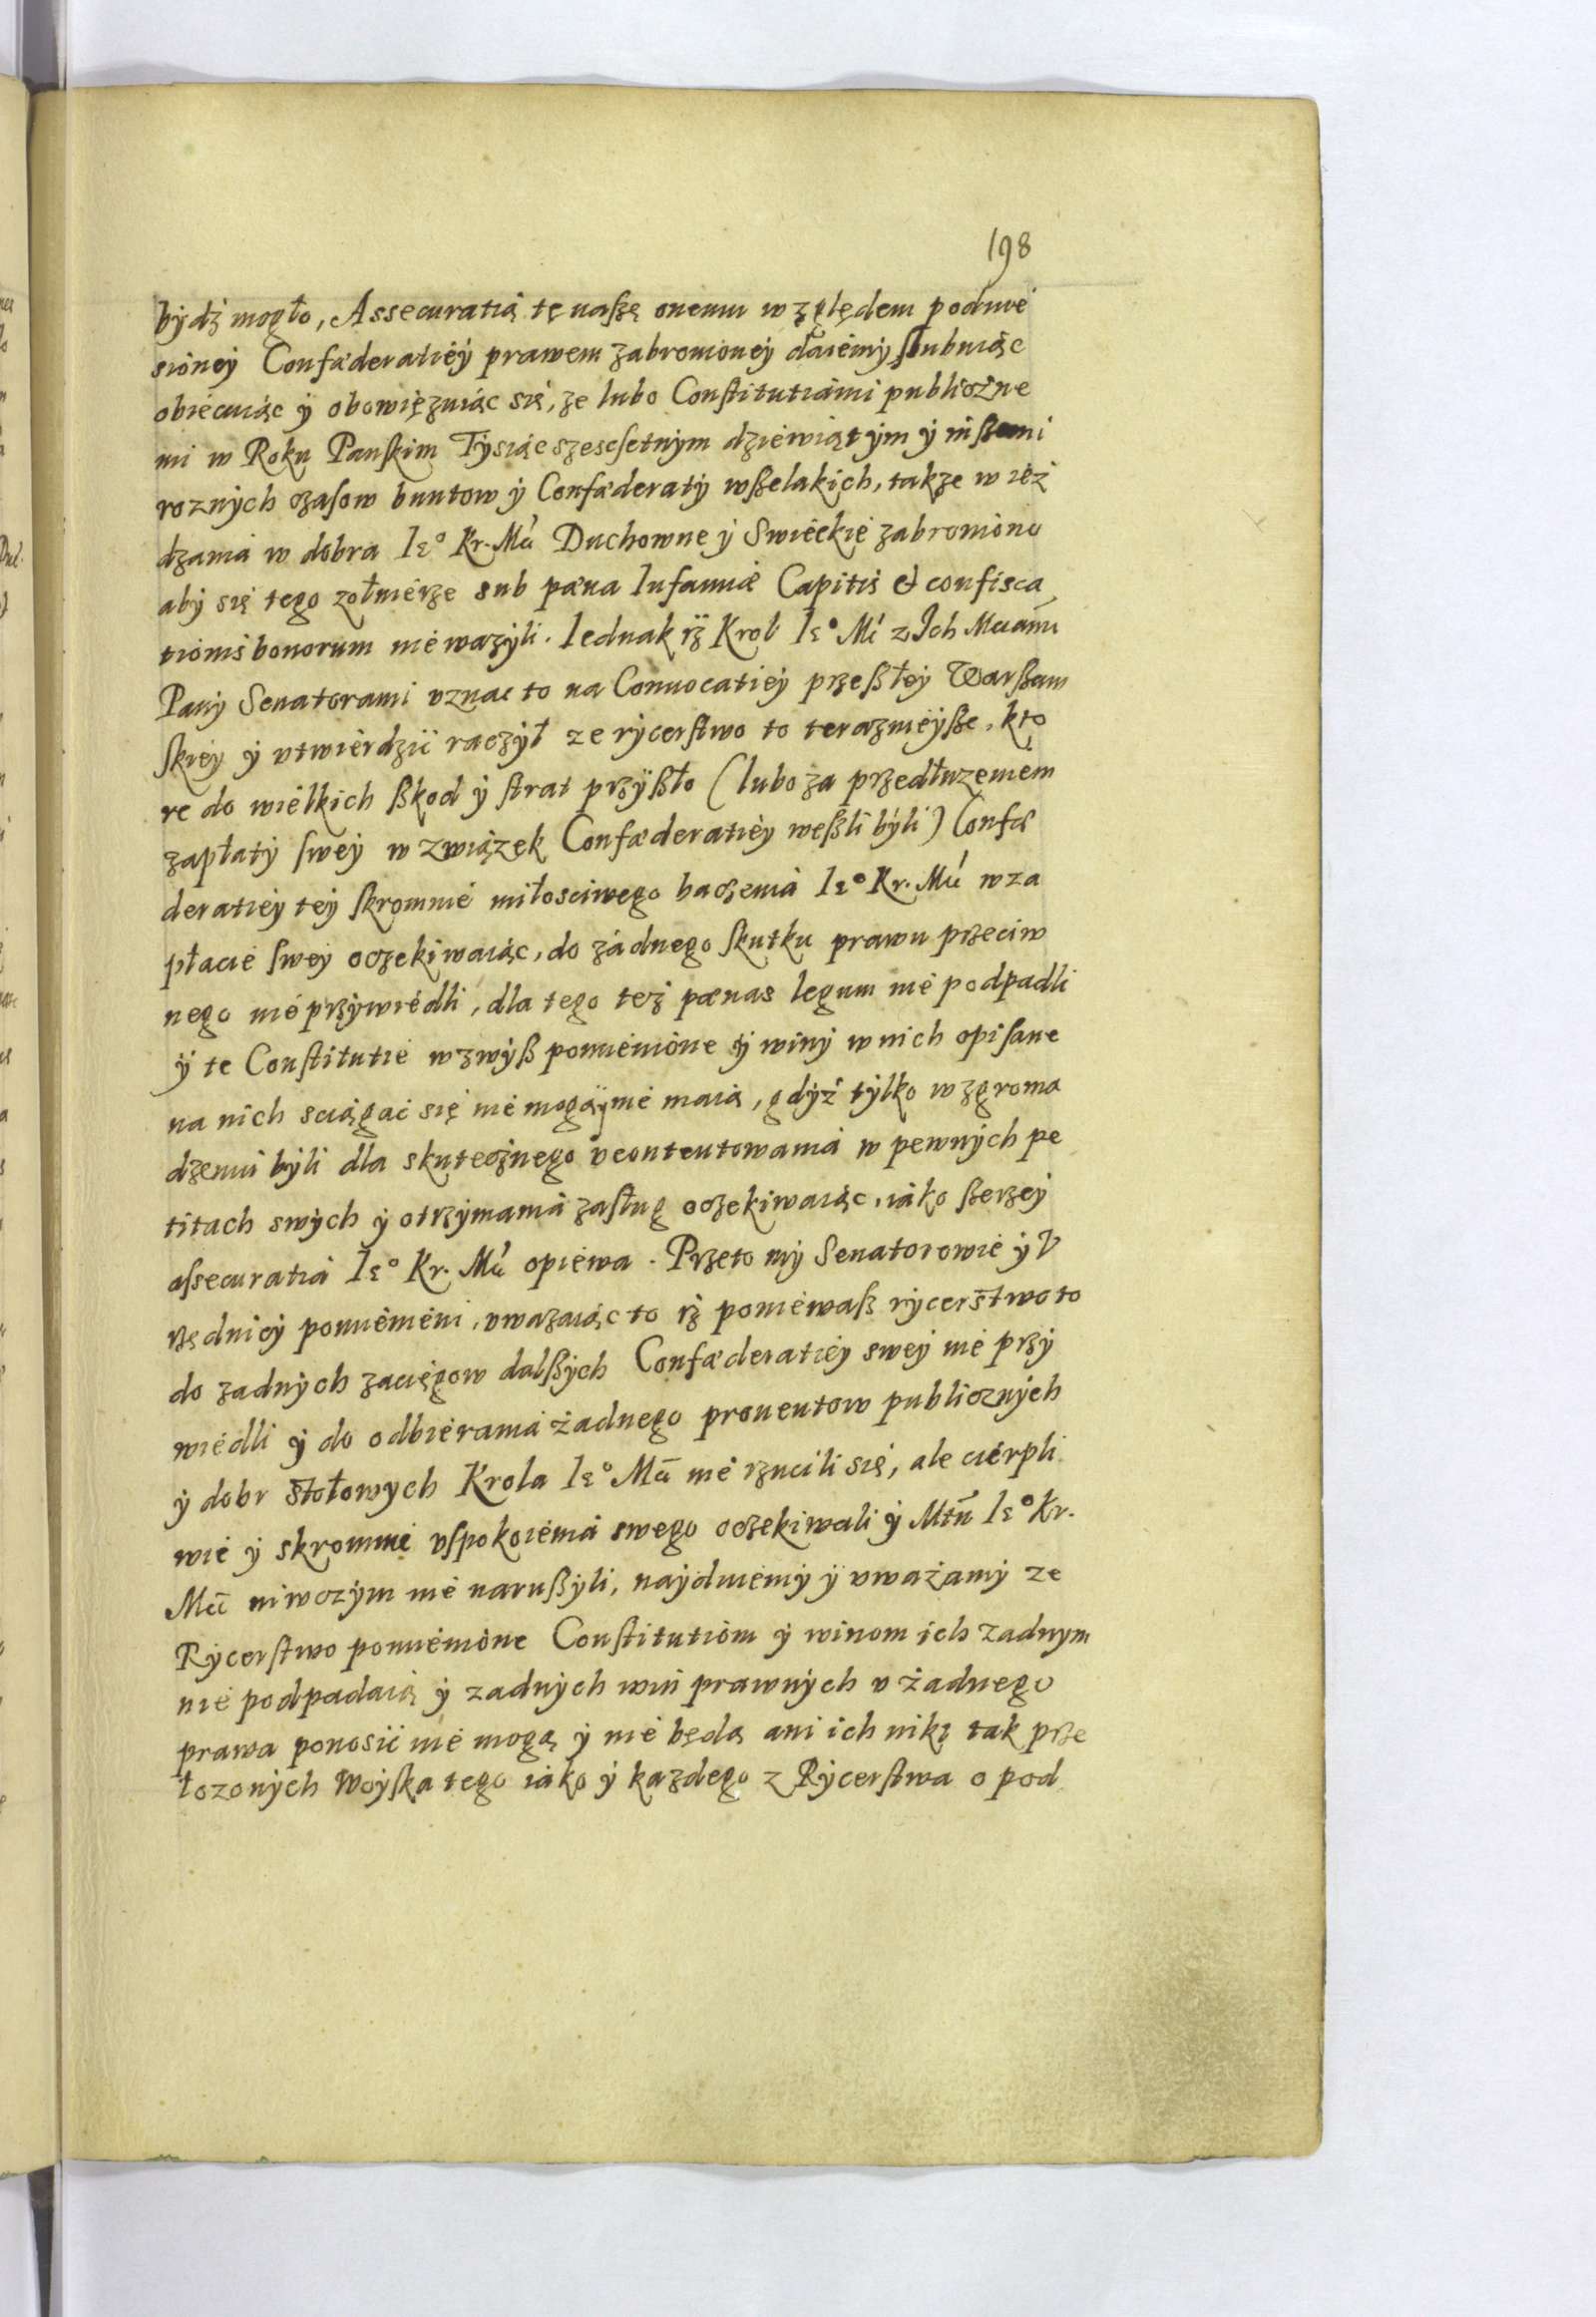 198
bydz mogło, Assecuratią tę naszę onemu względem podnie
sioney Confæderatiey prawem zabronioney daiemy slubuiąc
obiecuiąc y obowięzuiąc się, ze lubo Constitutiami publiczne
mi w Roku Panskim Tysiąc szescsetnym dziewiątym y inszemi
roznych czasow buntow y Confæderaty wszelakich, takze wież
dzania w dobra Ieº Kr. Mci Duchowne y Swieckie zabroniono
aby się tego zołnierze sub pæna Infamiæ Capitis & confisca
tionis bonorum nie wazyli. Iednak iz Krol Ieº Mć z Ich Mciami
Pany Senatorami uznac to na Convocatiey przeszłey Warszaw
skiey y utwierdzić raczył ze rycerstwo to teraznieysze, kto
re do wielkich szkod y strat przyszło (lubo za przedłuzeniem
zapłaty swey w związek Confæderatiey weszli byli) Confæ
deratiey tey skromnie miłosciwego baczenia Ieº Kr. Mci w za
płacie swey oczekiwaiąc, do żadnego skutku prawu przeciw
nego nie przywiedli, dla tego tez pænas legum nie podpadli
y te Constitutie wzwysz pomienione y winy w nich opisane
na nich sciągać się nie mogą y nie maią, gdyż tylko w zgroma
dzeniu byli dla skutecznego ucontentowania w pewnych pe
titach swych y otrzymania zasług oczekiwaiąc, iako szerzey
assecuratia Ieº Kr. Mci opiewa. Przeto my Senatorowie y V
rzędnicy pomienieni, uwazaiąc to iz poniewasz rycerstwo to
do zadnych zaciągow dalszych Confæderatiey swey nie przy
wiedli y do odbierania żadnego proventow publicznych
y dobr stołowych Krola Ieº Mci nie rzucili się, ale cierpli
wie y skromnie uspokoienia swego oczekiwali y Mtu Ieº Kr.
Mci niwczym nie naruszyli, nayduiemy y uważamy ze
Rycerstwo pomienione Constitutiom y winom ich zadnym
nie podpadaią y zadnych win prawnych u żadnego
prawa ponosić nie mogą y nie będą ani ich nikt tak prze
łozonych Woyska tego iako y kazdego z Rycerstwa o pod